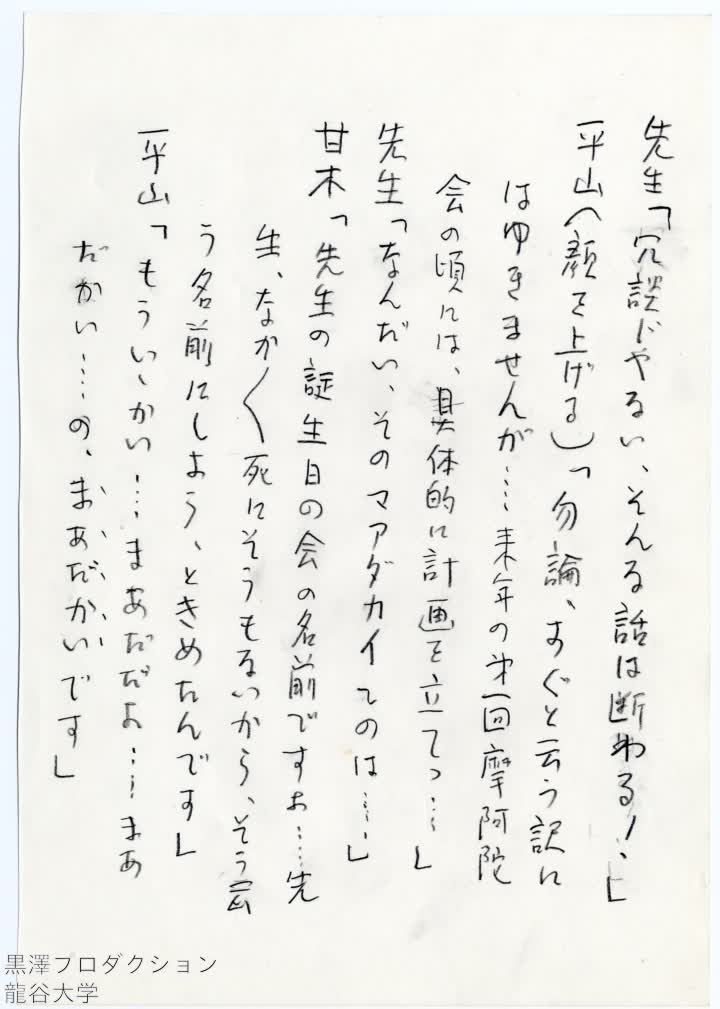 先生「冗談ぢやない、そんな話は断わる！」
平山（顔を上げる）「勿論、すぐと云う訳に
はゆきませんが……来年の第一回摩阿陀
会の頃には、具体的に計画を立てゝ……」
先生「なんだい、そのマアダカイてのは……」
甘木「先生の誕生日の会の名前ですよ……先
生、なか〱死にそうもないから、そう云
う名前にしよう、ときめたんです」
平山「もういゝかい……まあだだよ……まあ
だかい……の、まあだかいです」
黒澤プロダクション
龍谷大学